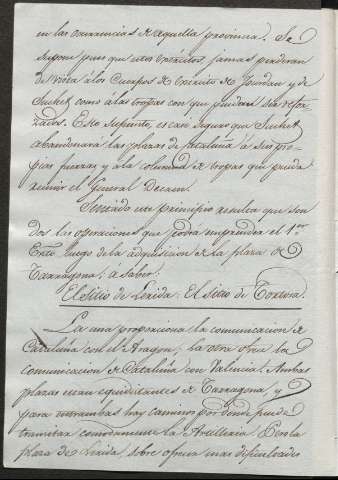 en las ocurrencias de aquella provincia. Se
supone pues que estos exércitos, jamas perderan
de vista á los Cuerpos de exército de Jourdan y de
Suchet como á las tropas con que puedan ser refor-
zados. Esto supuesto, es casi seguro que Suchet
abandonará las plazas de Cataluña á sus pro-
pias fuerzas y á la columna de tropas que pueda
reunir el General Decaen.
Sentado un principio resulta que son
dos las operaciones que podrá emprender el 1.er
Exto. luego de la adquisicion de la plaza de
Tarragona; á saber:
El sitio de Lerida: El sitio de Tortosa.
La una proporciona la comunicacion de
Cataluña con el Aragon; la otra abre la
comunicacion de Cataluña con Valencia. Ambas
plazas estan equidistantes de Tarragona, y
para entrambas hay caminos por donde puede
transitar comodamente la Artilleria. Pero la
plaza de Lerida, sobre ofrecer mas dificultades